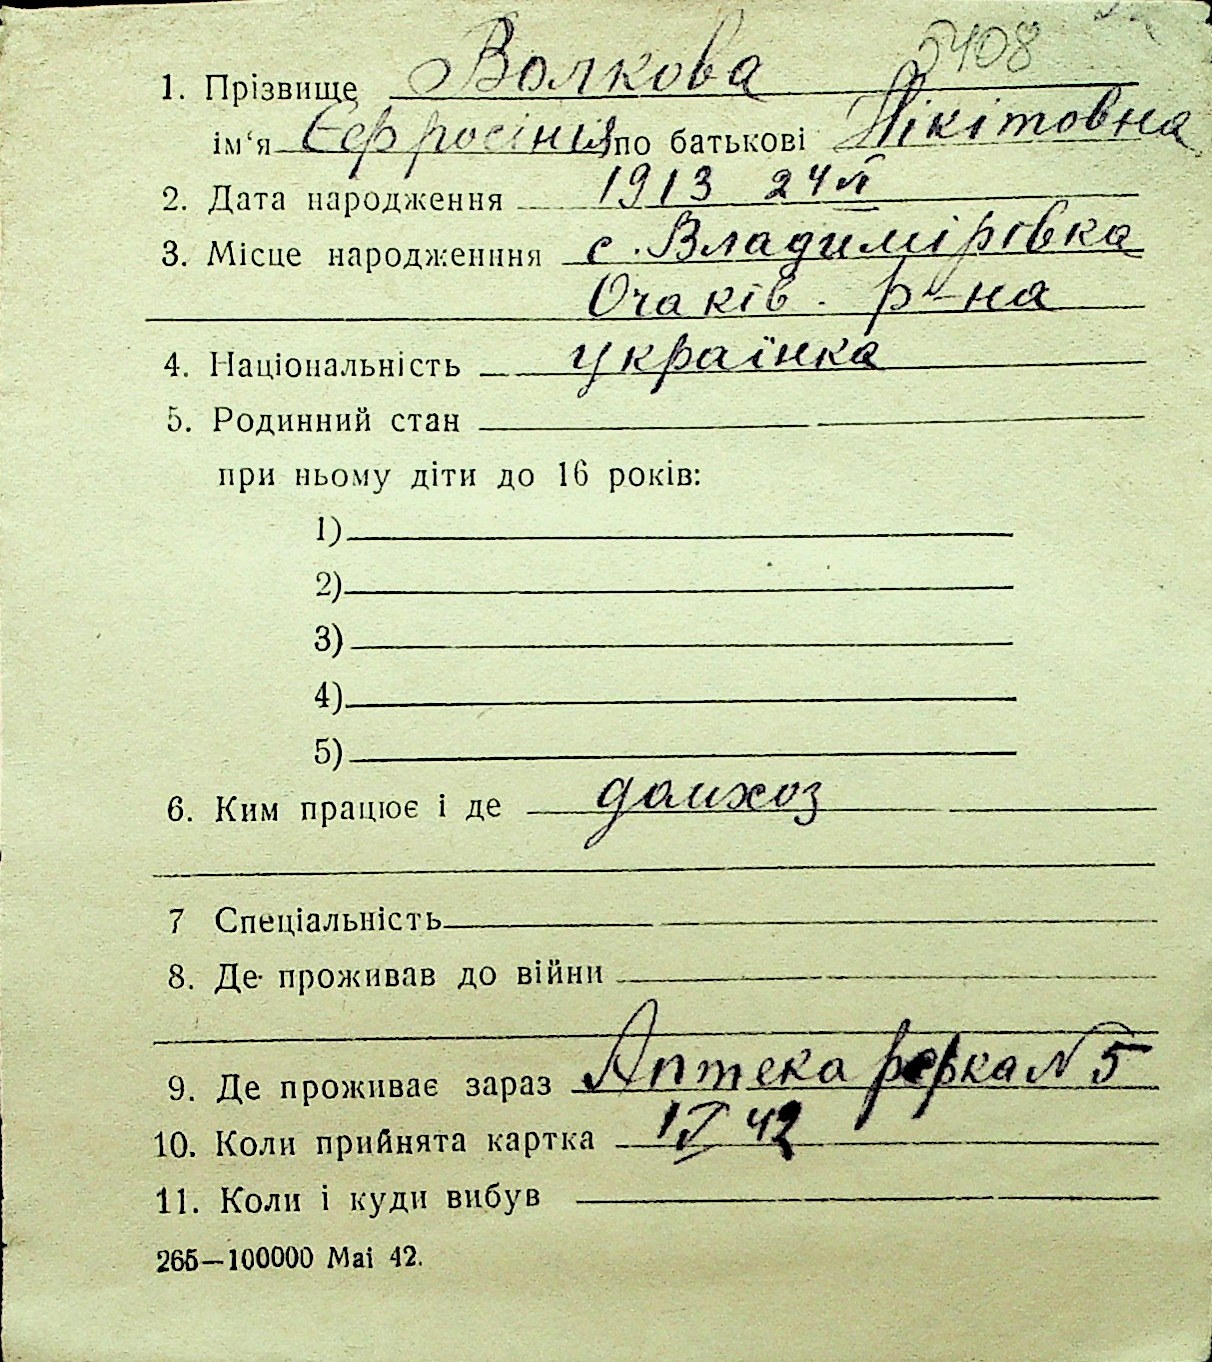 5408
1. Прізвище Волкова
ім'я Єфросінія по батькові Нікітовна
2. Дата народження 1913 24
3. Місце народженння с. Владиміровка
Очаків. р-на
4. Національність українка
5. Родинний стан
при ньому діти до 16 років:
1)
2)
3)
4)
5)
6. Ким працює і де домхоз
7 Спеціальність
8. Де проживав до війни
9. Де проживає зараз Аптека N 5
10. Коли прийнята картка 42
11. Коли і куди вибув
265—100000 Маі 42.